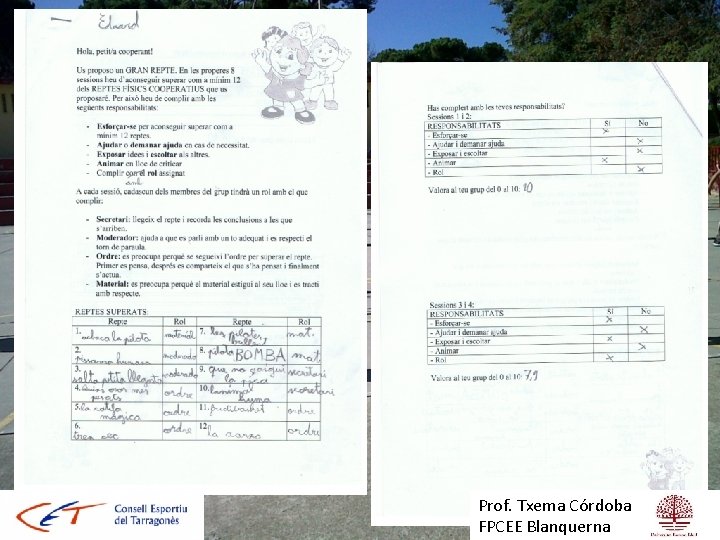 Eduard
Hola, petit/a cooperant!
Us proposo un GRAN REPTE. En les properes 8
sessions heu d'aconseguir superar com a mínim 12
dels REPTES FÍSICS COOPERATIUS que us
proposaré. Per això heu de complir amb les
següents responsabilitats:
- Esforçar-se per aconseguir superar com a
mínim 12 reptes.
- Ajudar o demanar ajuda en cas de necessitat.
- Exposar idees i escoltar als altres.
- Animar en lloc de criticar
- Complir amb el rol assignat
amb
A cada sessió, cadascun dels membres del grup tindrà un rol amb el que
complir:
- Secretari: llegeix el repte i recorda les conclusions a les que
s'arriben.
- Moderador: ajuda a que es parli amb un to adequat i es respecti el
torn de paraula.
- Ordre: es preocupa perquè se segueixi l'ordre per superar el repte.
Primer es pensa, després es comparteix el que s'ha pensat i finalment
s'actua.
- Material: es preocupa perquè el material estigui al seu lloc i es tracti
amb respecte.
REPTES SUPERATS:
Repte Rol Repte Rol
1. la pilota material 7. les mat.
2. humana moderado 8. pilota BOMBA mat
3. salta moderado 9. que no caigui secretari
4. mes pesats ordre 10. L'animal secretari
5. la catifa màgica ordre 11. ordre
6. tres ordre 12. la ordre
Has complert amb les teves responsabilitats?
Sessions 1 i 2:
RESPONSABILITATS Sí No
- Esforçar-se x
- Ajudar i demanar ajuda x
- Exposar i escoltar x
- Animar x
- Rol x
Valora al teu grup del 0 al 10: 10
Sessions 3 i 4:
RESPONSABILITATS Sí No
- Esforçar-se x
- Ajudar i demanar ajuda x
- Exposar i escoltar x
- Animar x
- Rol
Valora al teu grup del 0 al 10: 7,9
Consell Esportiu
del Tarragonès
Prof. Txema Córdoba
FPCEE Blanquerna